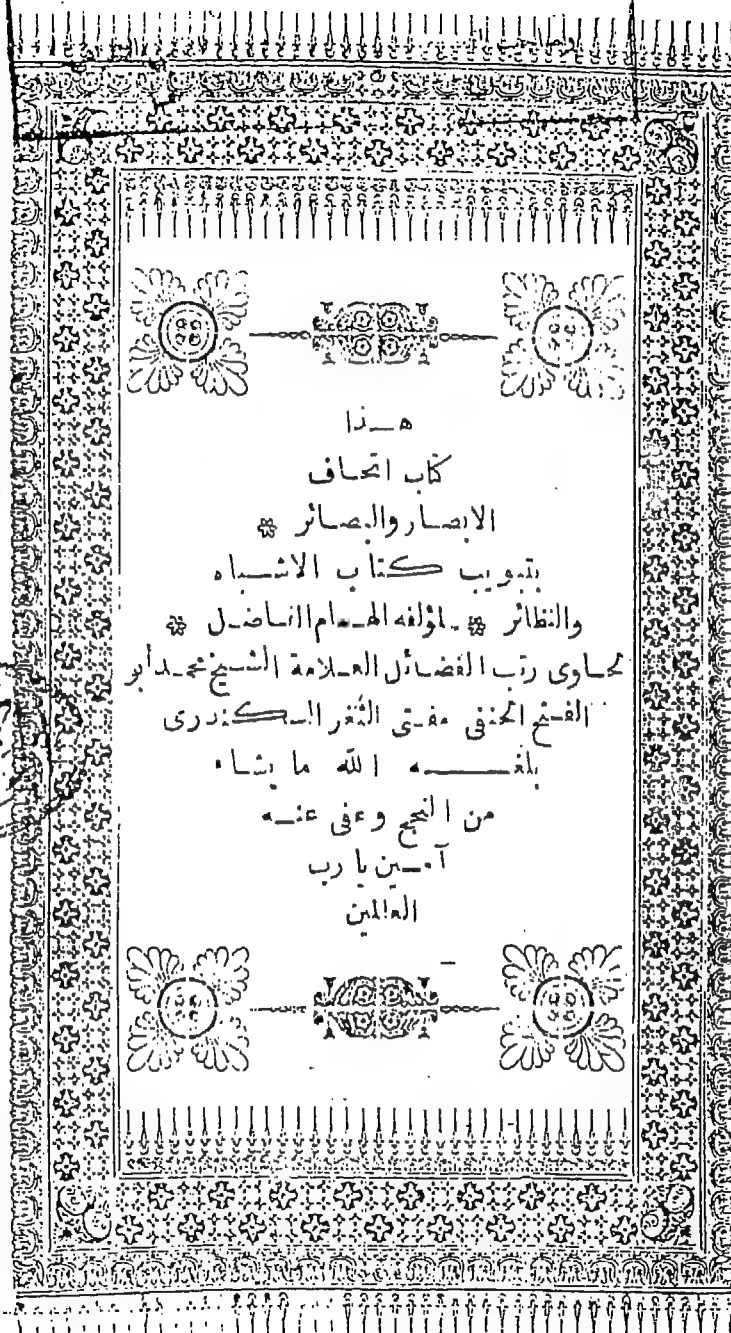 هذا
كتاب اتحاف
الابصار والبصائر
بتبويب كتاب الاشباه
والنظائر لمؤلفه الهمام الفاضل
محاوى رتب الفضائل العلامة الشيخ محمد أبو
الفتح الحنفى مفتى الثغر السكندرى
بلغه الله ما يشاء
من النجح وعفى عنه
آمين يا رب
العالمين